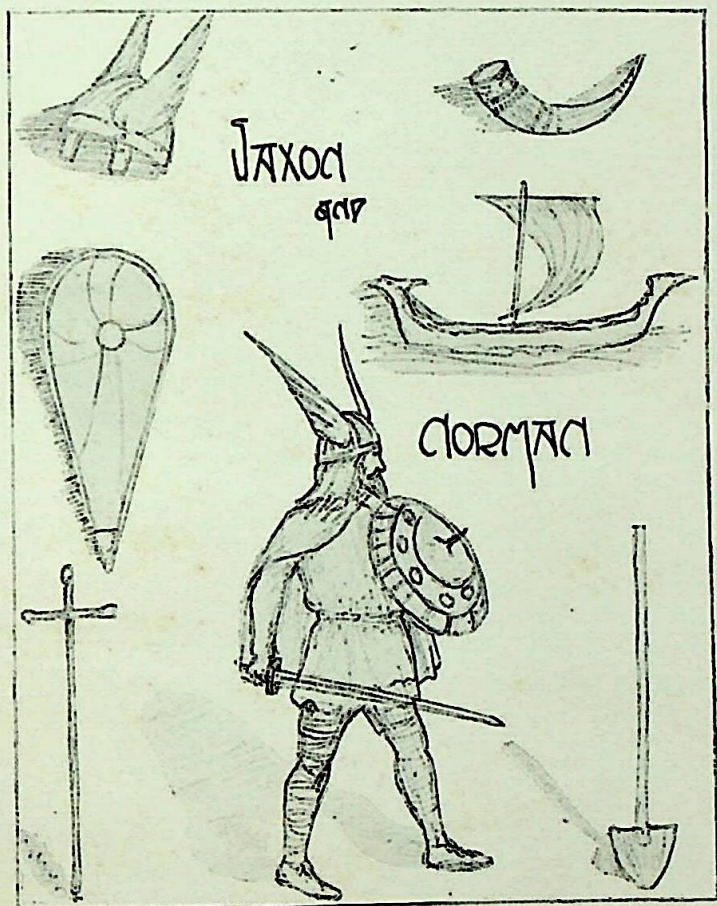 SAXON
AND
NORMAN